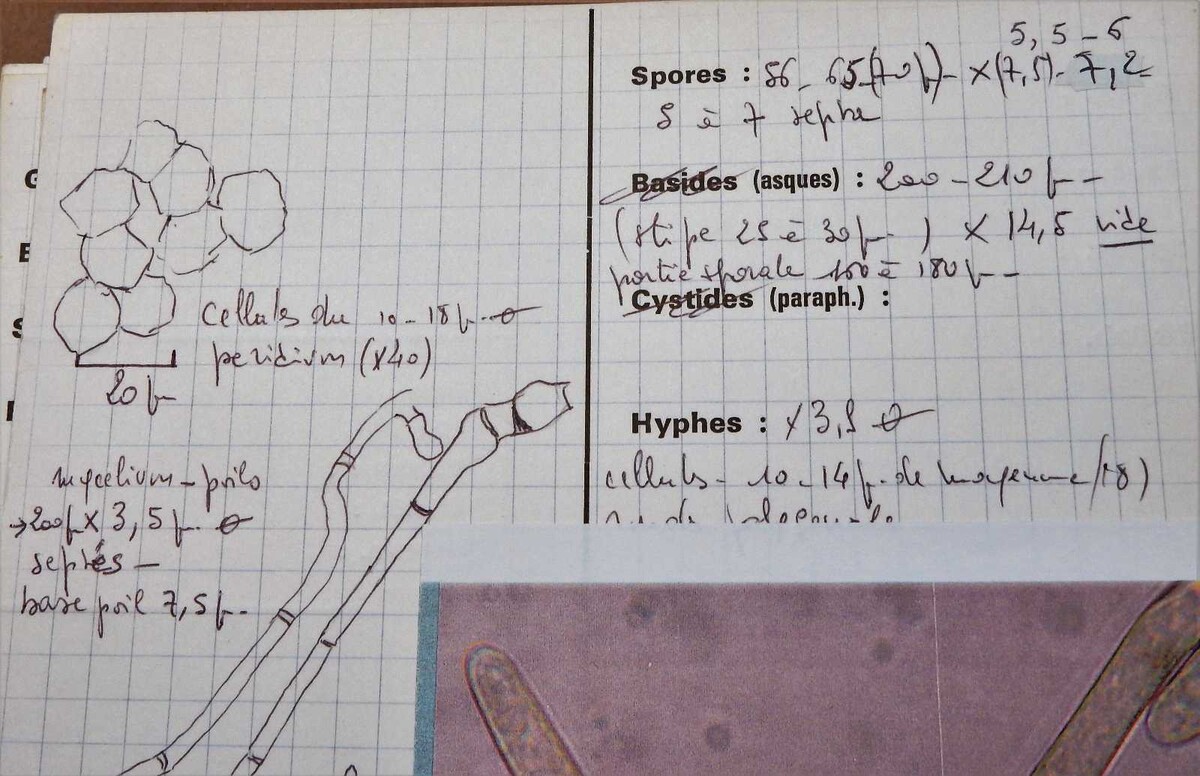 5,5 - 6
Spores : 56 - 65 (70 µ) - × (7,5) - 7,2
5 à 7 septa
Basides (asques) : 200 - 210 µ -
(stipe 25 à 30 µ - ) × 14,5 vide
partie sporale 150 à 180 µ -
Cystides (paraph.) :
Hyphes : × 3,5 ø
cellules - 10 - 14 µ. de moyenne (18)
cellules du 10 - 18 µ - ø
peridium (×40)
20 µ
mycelium - poils
→ 200 µ × 3,5 µ. ø
septés -
base poil 7,5 µ -